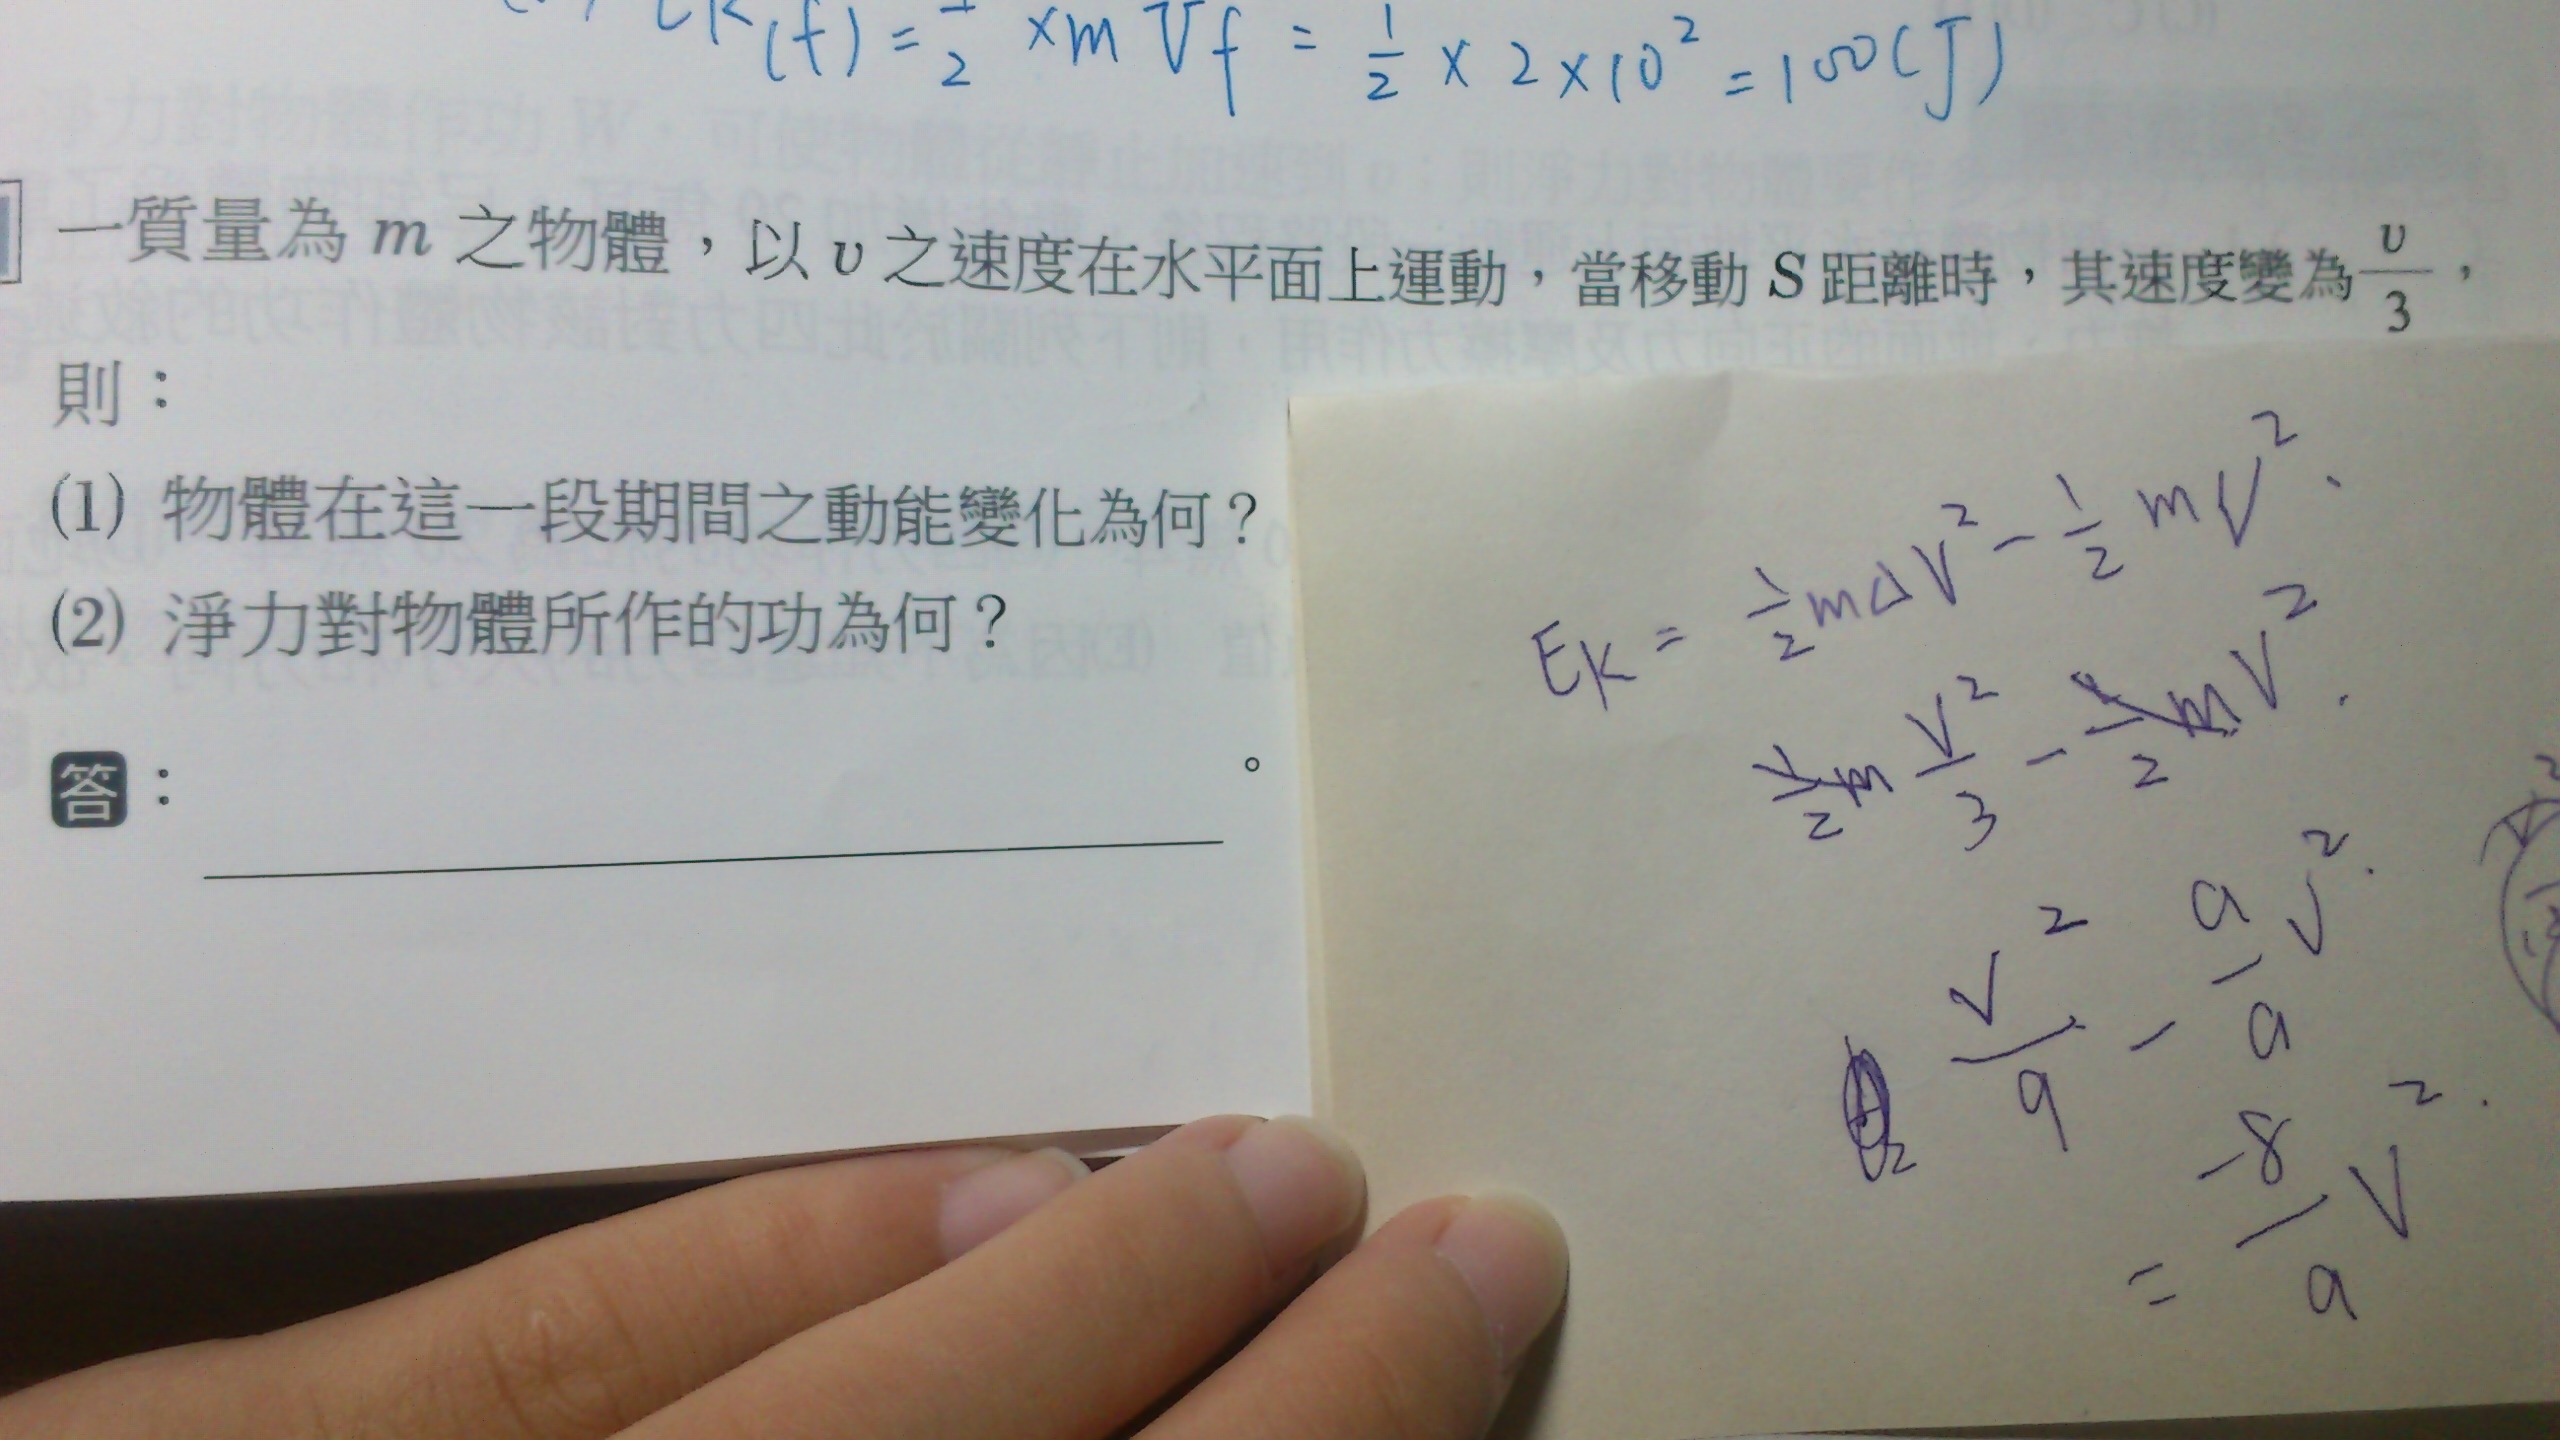 Ek(f) = 1/2 × m Vf = 1/2 × 2 × 10² = 100 (J)
一質量為 m 之物體，以 υ 之速度在水平面上運動，當移動 S 距離時，其速度變為 υ/3，
則：
(1) 物體在這一段期間之動能變化為何？
(2) 淨力對物體所作的功為何？
答： 。
EK = 1/2 m △V² - 1/2 mV².
1/2 m V²/3 - 1/2 mV².
V²/9 - 9/9 V².
= -8/9 V².